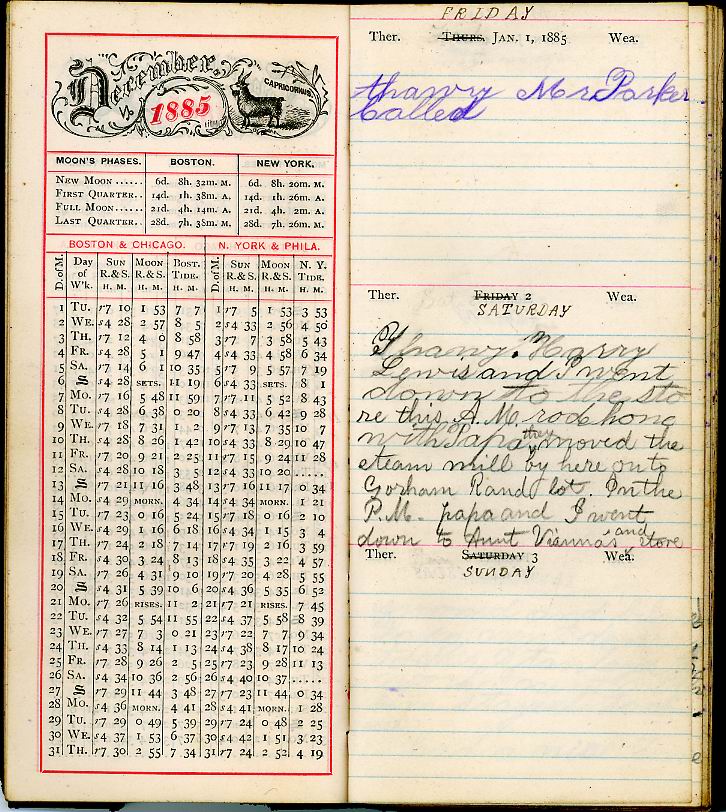 December,
1885
CAPRICORNUS
MOON'S PHASES. BOSTON. NEW YORK.
New Moon...... 6d. 8h. 32m. M. 6d. 8h. 20m. M.
First Quarter.. 14d. 1h. 38m. A. 14d. 1h. 26m. A.
Full Moon...... 21d. 4h. 14m. A. 21d. 4h. 2m. A.
Last Quarter... 28d. 7h. 38m. M. 28d. 7h. 26m. M.
BOSTON & CHICAGO. N. YORK & PHILA.
D. of M. Day of W'k. Sun R. & S. Moon R. & S. Bost. Tide. D. of M. Sun R. & S. Moon R. & S. N. Y. Tide.
H. M. H. M. H. M. H. M. H. M. H. M.
1 Tu. r7 10 1 53 7 7 1 r7 5 1 53 3 53
2 We. s4 28 2 57 8 5 2 s4 33 2 56 4 50
3 Th. r7 12 4 0 8 58 3 r7 7 3 58 5 43
4 Fr. s4 28 5 1 9 47 4 s4 33 4 58 6 34
5 Sa. r7 14 6 1 10 35 5 r7 9 5 57 7 19
6 S s4 28 sets. 11 19 6 s4 33 sets. 8 1
7 Mo. r7 16 5 48 11 59 7 r7 11 5 52 8 43
8 Tu. s4 28 6 38 0 20 8 s4 33 6 42 9 28
9 We. r7 18 7 31 1 2 9 r7 13 7 35 10 7
10 Th. s4 28 8 26 1 42 10 s4 33 8 29 10 47
11 Fr. r7 20 9 21 2 25 11 r7 15 9 24 11 28
12 Sa. s4 28 10 18 3 5 12 s4 33 10 20 .....
13 S r7 21 11 16 3 48 13 r7 16 11 17 0 34
14 Mo. s4 29 morn. 4 34 14 s4 34 morn. 1 21
15 Tu. r7 23 0 16 5 24 15 r7 18 0 16 2 10
16 We. s4 29 1 16 6 18 16 s4 34 1 15 3 4
17 Th. r7 24 2 18 7 14 17 r7 19 2 16 3 59
18 Fr. s4 30 3 24 8 13 18 s4 35 3 22 4 57
19 Sa. r7 25 4 31 9 10 19 r7 20 4 28 5 55
20 S s4 31 5 39 10 6 20 s4 36 5 35 6 52
21 Mo. r7 26 rises. 11 2 21 r7 21 rises. 7 45
22 Tu. s4 32 5 54 11 55 22 s4 37 5 58 8 39
23 We. r7 27 7 3 0 21 23 r7 22 7 7 9 34
24 Th. s4 33 8 14 1 13 24 s4 38 8 17 10 24
25 Fr. r7 28 9 26 2 5 25 r7 23 9 28 11 13
26 Sa. s4 34 10 36 2 56 26 s4 40 10 37 .....
27 S r7 29 11 44 3 48 27 r7 23 11 44 0 34
28 Mo. s4 36 morn. 4 41 28 s4 41 morn. 1 28
29 Tu. r7 29 0 49 5 39 29 r7 24 0 48 2 25
30 We. s4 37 1 53 6 37 30 s4 42 1 51 3 23
31 Th. r7 30 2 55 7 34 31 r7 24 2 52 4 19
FRIDAY
Ther. Thurs. Jan. 1, 1885 Wea.
thawy Mr Parker
Called
Ther. Friday 2 Wea.
SATURDAY
Thawy. Harry
Lewis and I went
down to the sto
re this A.M. rode home
with Papa they moved the
steam mill by here onto
Gorham Rand lot. In the
P.M. papa and I went
down to Aunt Vianna's and store
Ther. Saturday 3 Wea.
SUNDAY